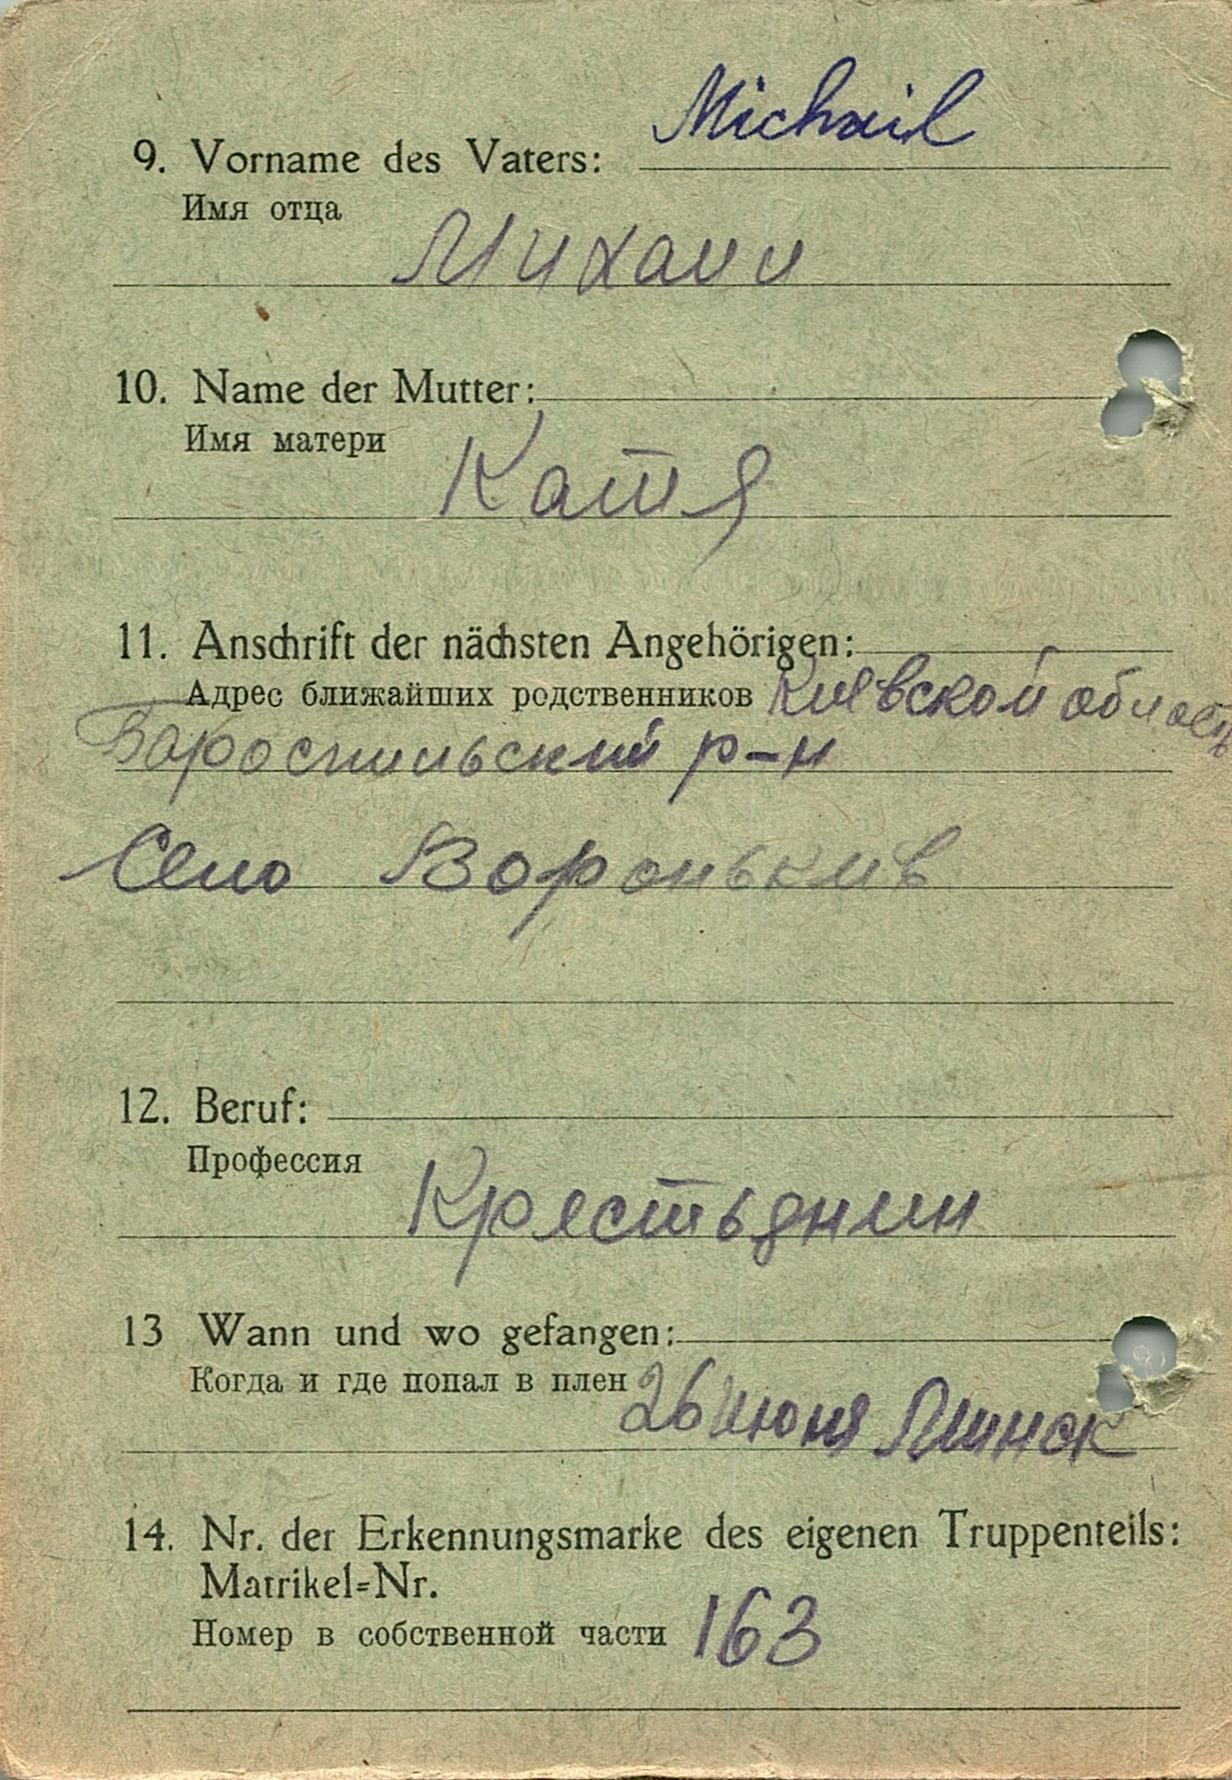 Michail
9. Vorname des Vaters:
Имя отца
Михаил
10. Name der Mutter:
Имя матери
Катя
11. Anschrift der nächsten Angehörigen:
Адрес ближайших родственников Киевской область
Бароспильский р-н
Село Вороньков
12. Beruf:
Профессия
Крестьянин
13 Wann und wo gefangen:
Когда и где попал в плен 26 июня Минск
14. Nr. der Erkennungsmarke des eigenen Truppenteils:
Matrikel=Nr.
Номер в собственной части 163